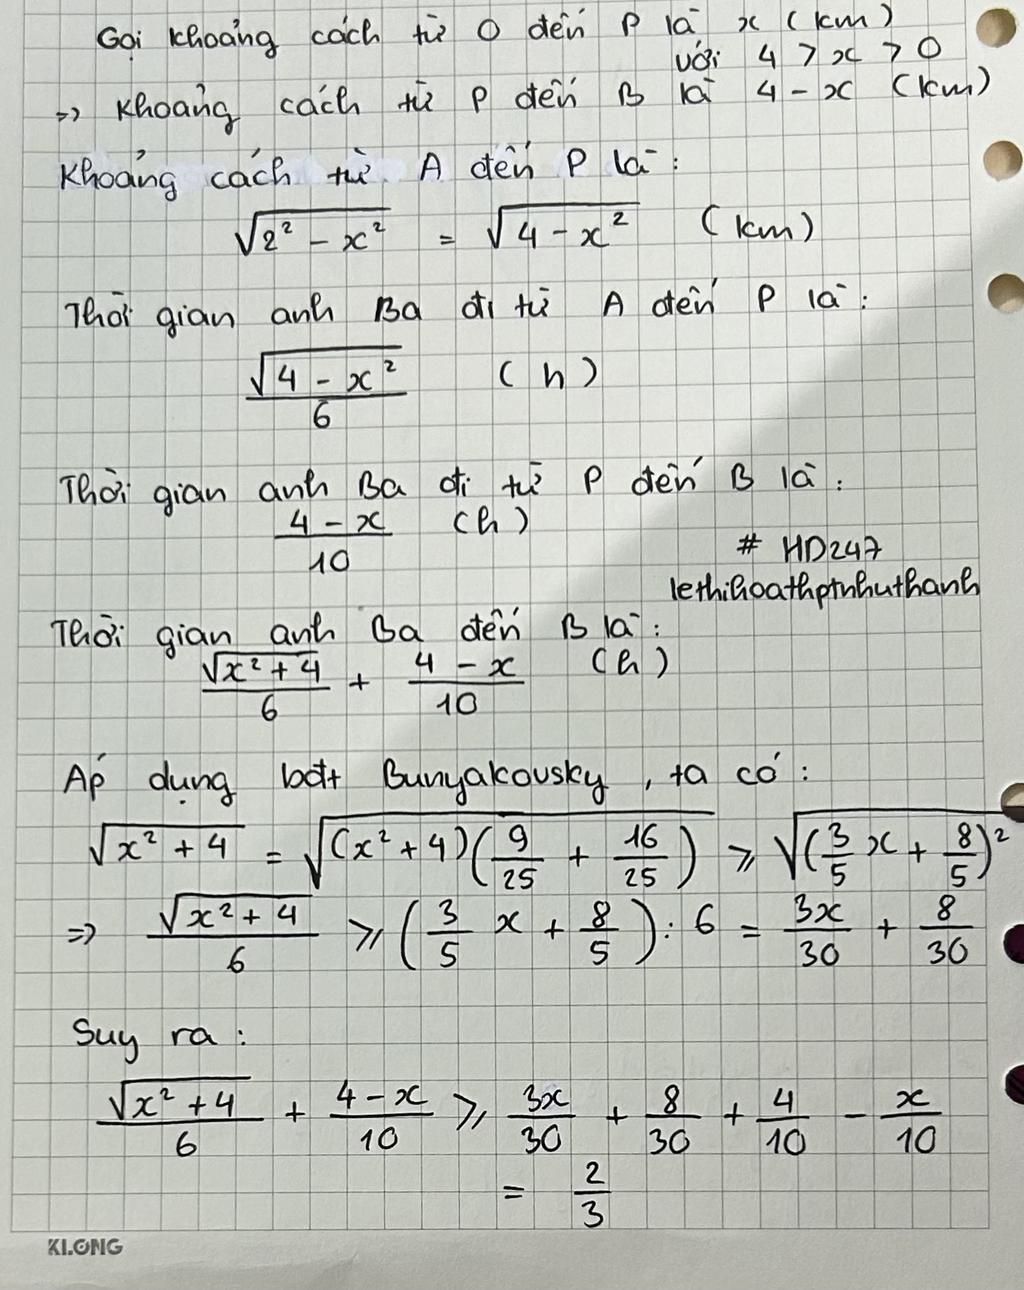 Gọi khoảng cách từ O đến P là x (km)
với 4 > x > 0
=> Khoảng cách từ P đến B là 4 - x (km)
Khoảng cách từ A đến P là:
√(2² - x²) = √(4 - x²) (km)
Thời gian anh Ba đi từ A đến P là:
√(4 - x²)/6 (h)
Thời gian anh Ba đi từ P đến B là:
(4 - x)/10 (h)
# HD247
lethihoathptnhuthanh
Thời gian anh Ba đến B là:
√(x² + 4)/6 + (4 - x)/10 (h)
Áp dụng bđt Bunyakovsky, ta có:
√(x² + 4) = √((x² + 4)(9/25 + 16/25)) ⩾ √((3/5 x + 8/5)²)
=> √(x² + 4)/6 ⩾ (3/5 x + 8/5) : 6 = 3x/30 + 8/30
Suy ra:
√(x² + 4)/6 + (4 - x)/10 ⩾ 3x/30 + 8/30 + 4/10 - x/10
= 2/3
KLONG